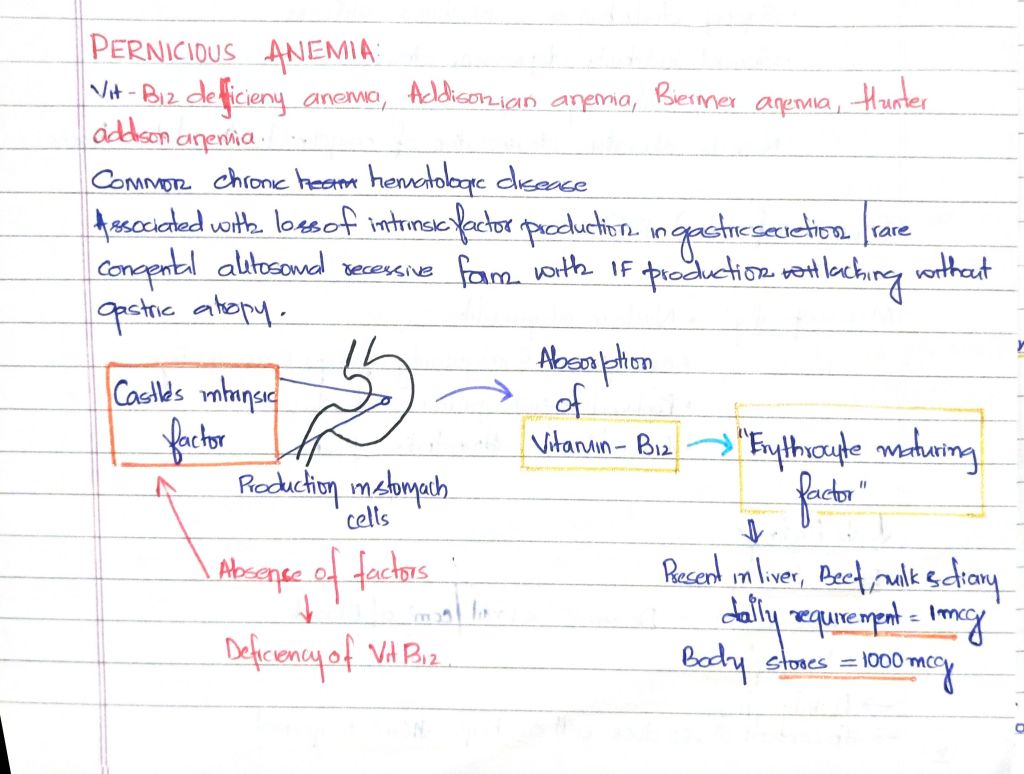 PERNICIOUS ANEMIA:
Vit-B12 deficieny anemia, Addisonian anemia, Biermer anemia, Hunter
addison anemia.
Common chronic hematologic disease
Associated with loss of intrinsic factor production in gastric secretion / rare
congenital autosomal recessive form with IF production lacking without
gastric atropy.
Castle's intrinsic
factor
Production in stomach
cells
Absorption
of
Vitamin-B12
"Erythrocyte maturing
factor"
Absense of factors
Deficiency of Vit B12.
Present in liver, Beef, milk & diary
daily requirement = 1mcg
Body stores = 1000 mcg